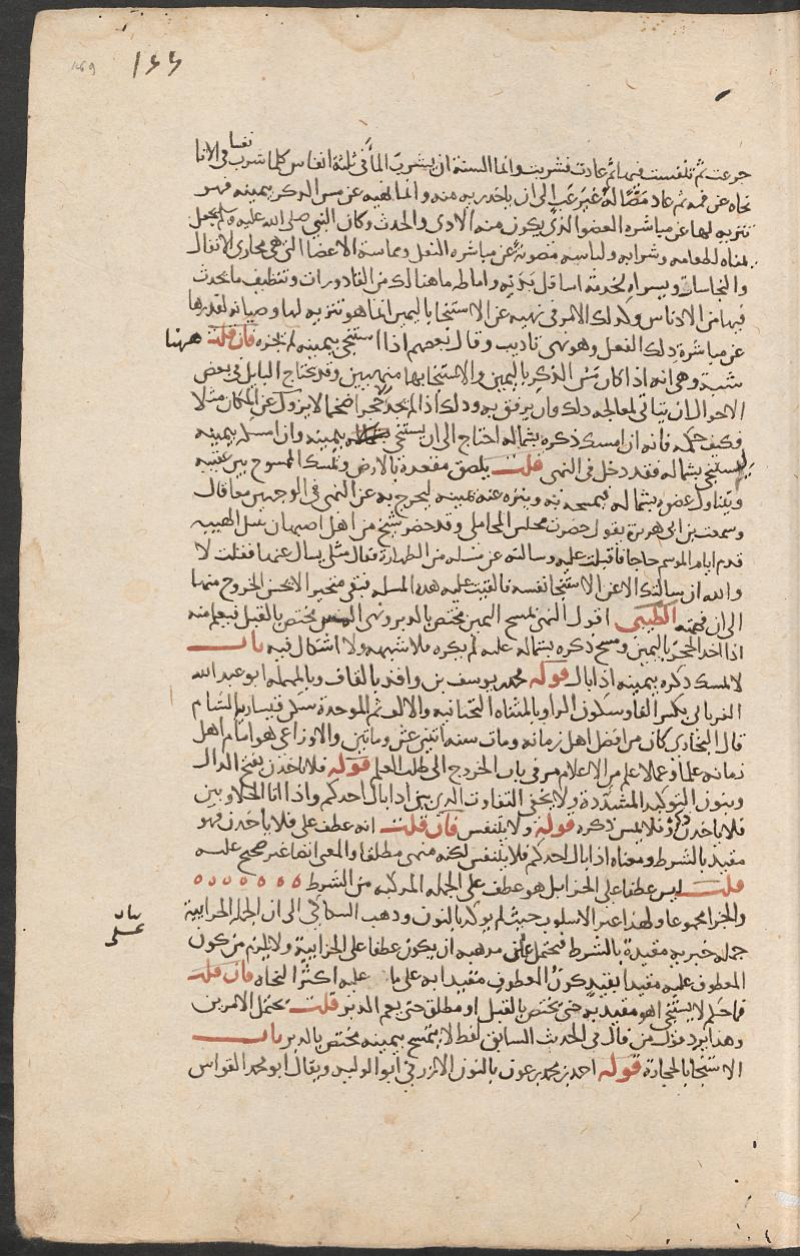 ١٤٤ 169
جرعت ثم تنفست فيها ثم عادت فشربت وانما السنة ان يشرب الماء في ثلثة انفاس كلما شرب نفسا في الانا
نحاه عن فمه ثم عاد مصا له غير عب الى ان ياخذ ريه منه وانما نهيه عن مس الذكر بيمينه فهو
تنزيه لها عن مباشرة العضو الذي يكون منه الاذى والحدث وكان النبي صلى الله عليه وسلم يجعل
يمناه لطعامه وشرابه ولباسه مصونة عن مباشرة الثفل ومماسة الاعضا التي هي مجاري الاثفال
والنجاسات ويسراه لخدمة اسافل بدنه واماطة ما هنالك من القاذورات وتنظيف ما يحدث
فيها من الادناس وكذلك الامر في نهيه عن الاستنجا باليمين انما هو تنزيه لها وصيانة لقدرها
عن مباشرة ذلك الفعل وهو نهي تاديب وقال بعضهم اذا استنجى بيمينه لم يجزه فان قلت ههنا
شبهة وهي انه اذا كان مس الذكر باليمين والاستنجا بها منهيين وقد يحتاج البايل في بعض
الاحوال ان يتاتى لمعالجة ذلك وان يرفق به وذلك اذا لم يجد الا حجرا ضخما لا يزول عن المكان مثلا
فكيف حكمه فانه ان امسك ذكره بشماله احتاج الى ان يستنجي بيمينه وان امسكه بيمينه
ليستنجي بشماله فقد دخل في النهي قلت يلصق مقعدته بالارض ويمسك الممسوح بين عقبيه
ويتناول عضوه بشماله فيمسحه به وينزه عنه يمينه ليخرج به عن النهي في الوجهين معا قال
وسمعت بن ابي هريرة يقول حضرت مجلس المحاملي وقد حضر شيخ من اهل اصبهان نبيل الهيبة
قدم ايام الموسم حاجا فاقبلت عليه وسالته عن مسلة من الطهارة فقال مثلي يسال عنها فقلت لا
والله ان سالتك الا عن الاستنجا نفسه فالقيت عليه هذه المسلة فبقي متحيرا لا يحسن الخروج منها
الى ان فهمته الطيبي اقول النهي لمسح اليمين مختص بالدبر ونهي المس مختص بالقبل فيعلم منه
اذا اخذ الحجر باليمين ومسح ذكره بشماله عليه لم يكره فلا شبهة ولا اشكال فيه باب
لا يمسك ذكره بيمينه اذا بال قوله محمد بن يوسف بن واقد بالقاف وبالمهملة ابو عبد الله
الفريابي بكسر الفا وسكون الرا وبالمثناة التحتانية وبالالف ثم الموحدة سكن قيسارية الشام
قال البخاري كان من افضل اهل زمانه ومات سنة اثنتي عشر وماتين والاوزاعي هو امام اهل
زمانه علما وعملا علم من الاعلام مر في باب الخروج الى طلب العلم قوله فلا ياخذن بفتح الذال
وبنون التوكيد المشددة ولا يخفى التفاوت الذي بين اذا بال احدكم واذا اتى الخلا وبين
فلا ياخذن ذكره وفلا يمس ذكره قوله ولا يتنفس فان قلت انه عطف على فلا ياخذن فهو
مقيد بالشرط ومعناه اذا بال احدكم فلا يتنفس لكنه منهي مطلقا والمعنى ايضا غير صحيح عليه
قلت ليس عطفا على الجزا بل هو عطف على الجملة المركبة من الشرط
والجزا مجموعا ولهذا غير الاسلوب حيث لم يوكد بالنون وذهب السكاكي الى ان الجملة الجزايية
جملة خبرية مقيدة بالشرط فيحتمل على مذهبه ان يكون عطفا على الجزايية ولا يلزم من كون
المعطوف عليه مقيدا بقيد كون المعطوف مقيدا به على ما عليه اكثر النحاة فان قلت
فما حكم لا يستنجي اهو مقيد به حتى يختص بالقبل او مطلق حتى يعم الدبر قلت يحتمل الامرين
وهذا يرد قول من قال في الحديث السابق لفظ لا يتمسح بيمينه مختص بالدبر باب
الاستنجا بالحجارة قوله احمد بن محمد بن عون بالنون الازرقي ابو الوليد ويقال ابو محمد القواس